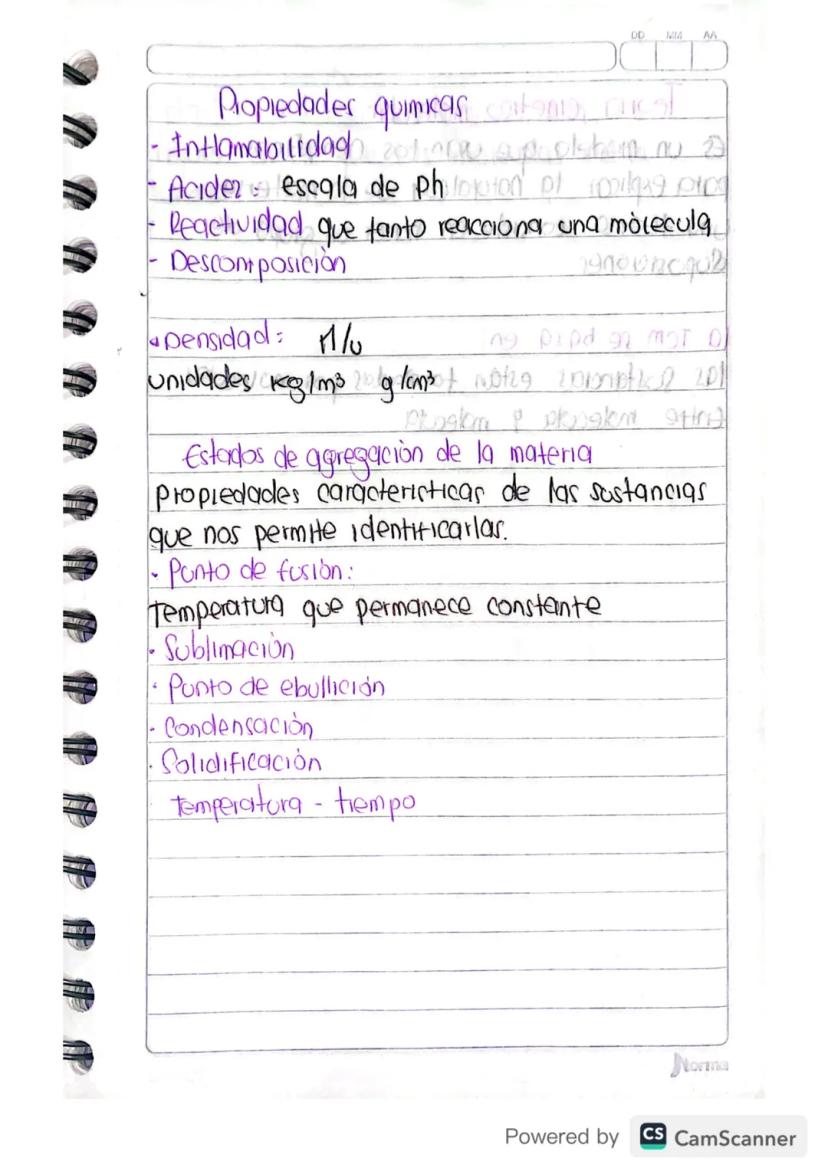 DD MM AA
Propiedades quimicas
- Inflamabilidad
- Acidez: escala de Ph
- Reactividad que tanto reacciona una mòlecula
- Descomposición
• Densidad: M/v
unidades kg/m³ g/cm³
Estados de agregación de la materia
Propiedades caracteristicas de las sustancias
que nos permite identificarlas.
• Punto de fusión:
Temperatura que permanece constante
• Sublimación
• Punto de ebullición
- Condensación
• Solidificación
Temperatura - tiempo
Norma
Powered by CS CamScanner